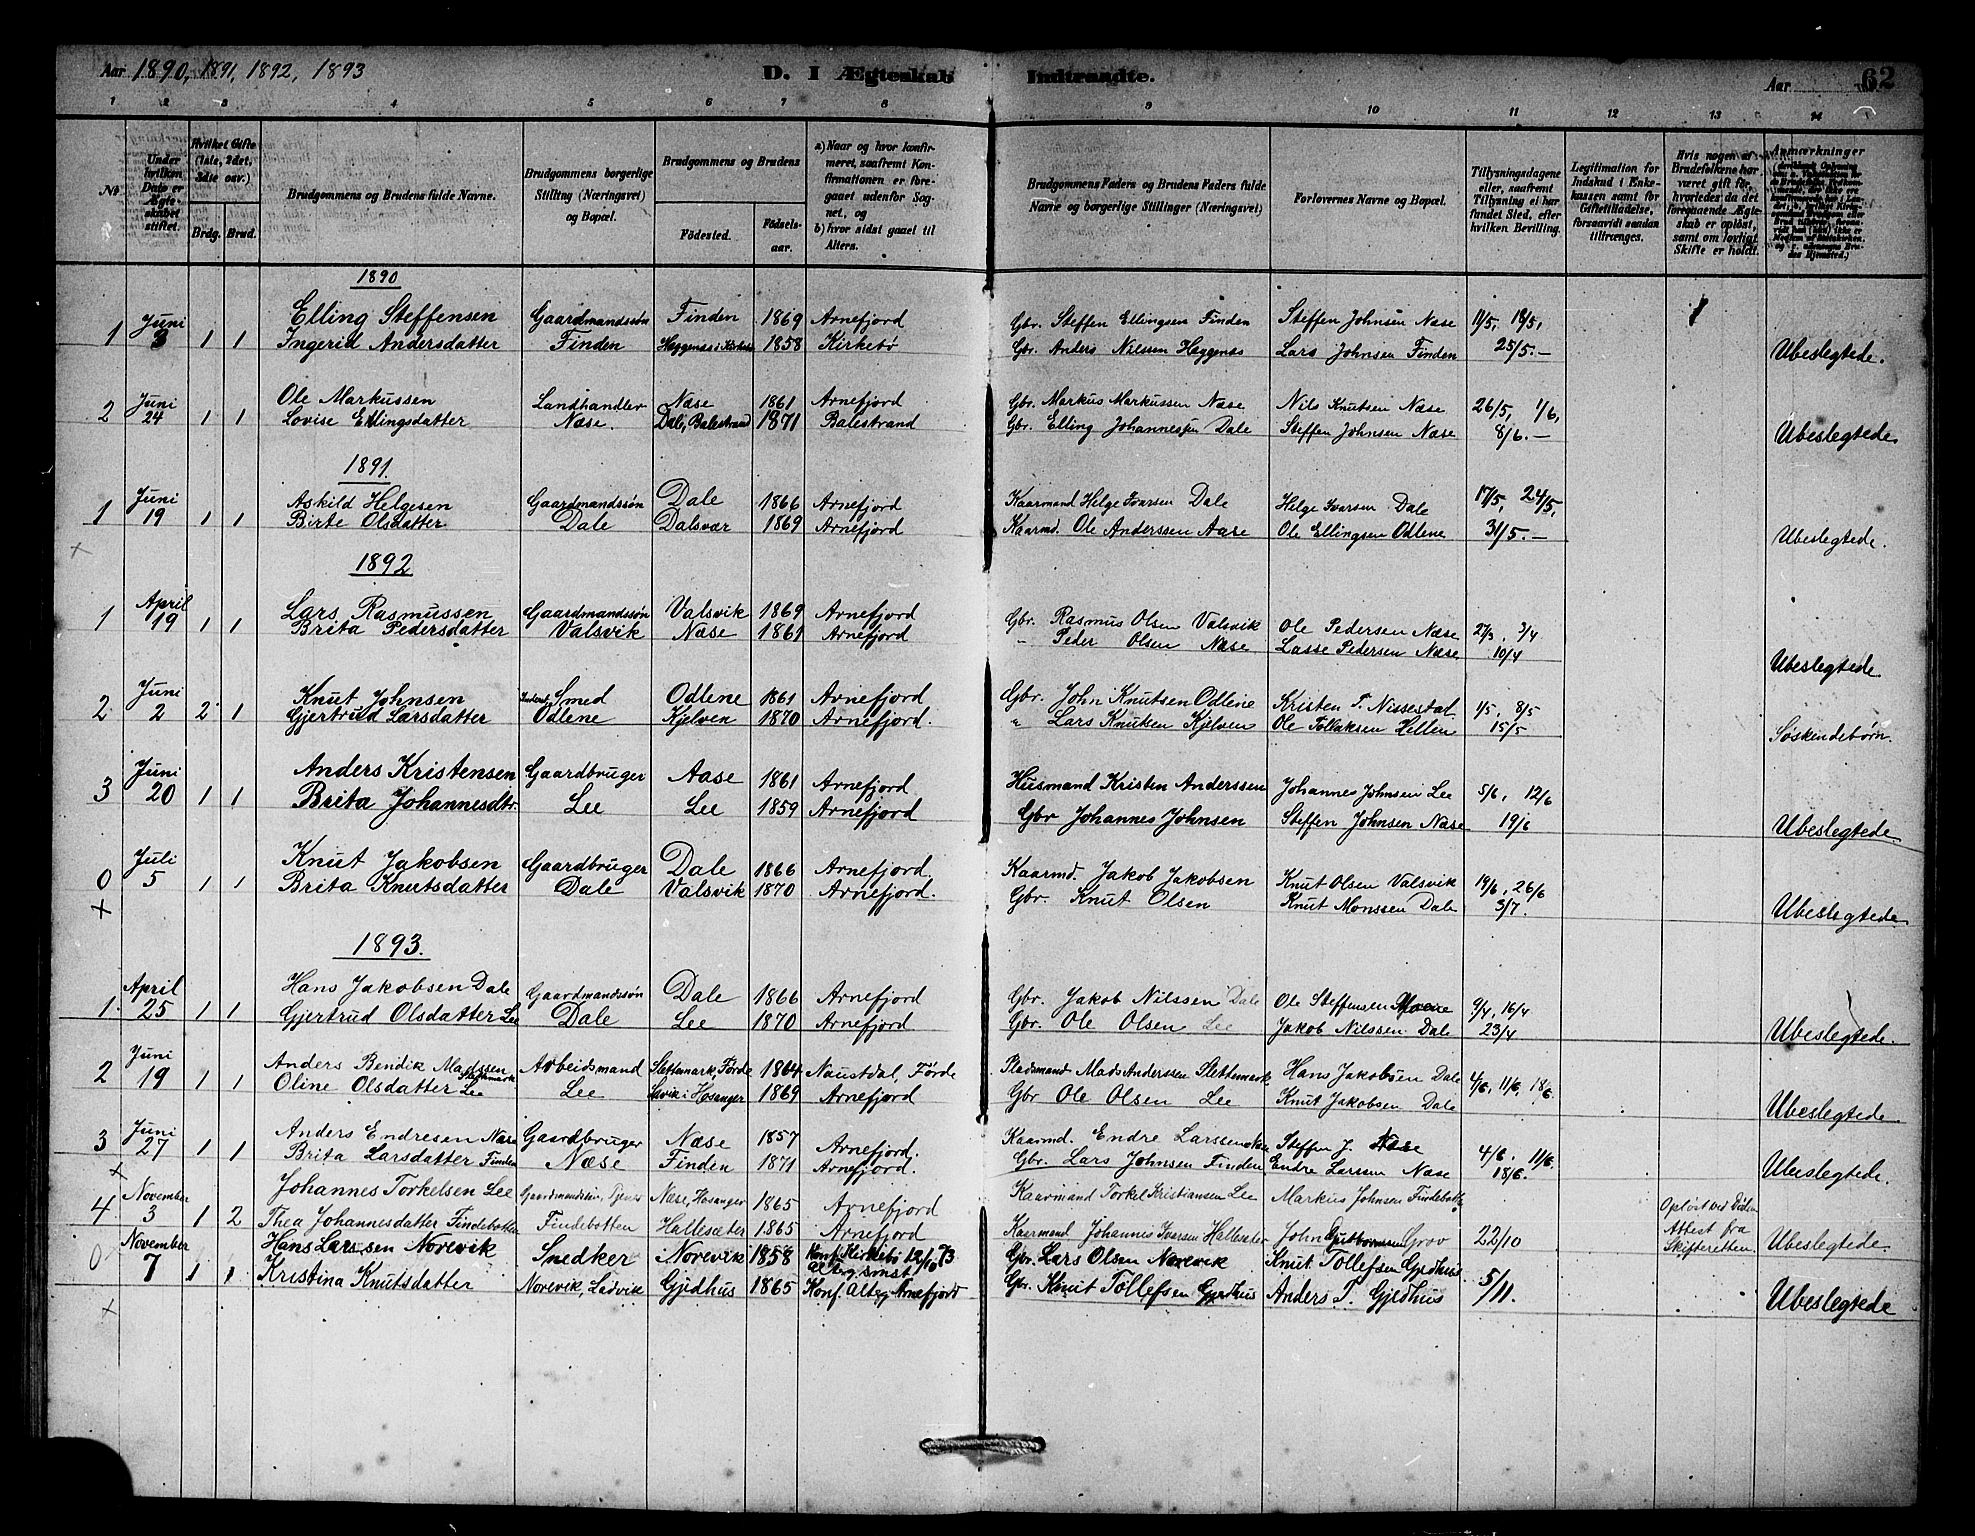 Aar 1890, 1891, 1892, 1893 D. I Ægteskab Indtraadte. Aar 62
1 2 3 4 5 6 7 8 9 10 11 12 13 14
No.
Under hvilken Dato er Ægteskabet stiftet.
Hvilket Gifte (1ste, 2det, 3die osv.)
Brdg. Brud.
Brudgommens og Brudens fulde Navne.
Brudgommens borgerlige Stilling (Næringsvei) og Bopæl.
Brudgommens og Brudens
Födested. Födselsaar.
a) Naar og hvor konfirmeret, saafremt Konfirmationen er foregaaet udenfor Sognet, og
b) hvor sidst gaaet til Alters.
Brudgommens Faders og Brudens Faders fulde Navne og borgerlige Stillinger (Næringsvei)
Forlovernes Navne og Bopæl.
Tillysningsdagene eller, saafremt Tillysning ei har fundet Sted, efter hvilken Bevilling.
Legitimation for Indskud i Enkekassen samt for Giftetilladelse, forsaavidt saadan tiltrænges.
Hvis nogen af Brudefolkene har været gift før, hvorledes da det foregaaende Ægteskab er opløst, samt om lovligt Skifte er holdt.
Anmærkninger
1890
1 Juni 3 1 1 Elling Steffensen Gaardmandssøn Finden 1869 Arnefjord Gbr. Steffen Ellingsen Finden Steffen Johnsen Næse 11/5, 18/5,
Ingerid Andersdatter Finden 1858 Kirkebø Gbr. Anders Nilssen Heggenæs Lars Johnsen Finden 25/5.— Ubeslegtede.
2 Juni 24 1 1 Ole Markussen Landhandler Næse 1861 Arnefjord Gbr. Markus Markussen Næse Nils Knutsen Næse 26/5, 1/6,
Lovise Ellingsdatter Næse. Dale, Balestrand 1871 Balestrand Gbr. Elling Johannessen Dale Steffen Johnsen Næse 8/6.— Ubeslegtede
1891
1 Juni 19 1 1 Askild Helgesen Gaardmandssøn Dale 1866 Arnefjord Kaarmand Helge Ivarsen Dale Helge Ivarsen Dale 17/5, 24/5,
Birte Olsdatter Dale Dalsvær 1869 Arnefjord Kaarmd. Ole Anderssen Aase Ole Ellingsen Odlene 31/5.— Ubeslegtede.
1892
1 April 19 1 1 Lars Rasmussen Gaardmandssøn Valsvik 1869 Arnefjord Gbr. Rasmus Olsen Valsvik Ole Pedersen Næse 27/3, 3/4
Brita Pedersdatter Valsvik Næse 1861 Arnefjord - Peder Olsen Næse Lasse Pedersen Næse 10/4 Ubeslegtede
2 Juni 2 2 1 Knut Johnsen Smed Odlene 1861 Arnefjord Gbr. John Knutsen Odlene Kristen T. Nissestad 1/5, 8/5
Gjertrud Larsdatter Odlene Kjelven 1870 Arnefjord. " Lars Knutsen Kjelven Ole Tollaksen Hellen 15/5 Søskendebørn.
3 Juni 20 1 1 Anders Kristensen Gaardbruger Aase 1861 Arnefjord Husmand Kristen Anderssen Johannes Johnsen Lee 5/6, 12/6
Brita Johannesdtr. Lee Lee 1859 Arnefjord Gbr Johannes Johnsen Steffen Johnsen Næse 19/6 Ubeslegtede
0 Juli 5 1 1 Knut Jakobsen Gaardbruger Dale 1866 Arnefjord. Kaarmd. Jakob Jakobsen Knut Olsen Valsvik 19/6, 26/6
Brita Knutsdatter Dale Valsvik 1870 Arnefjord. Gbr. Knut Olsen Knut Monssen Dale 3/7. Ubeslegtede
1893.
1. April 25 1 1 Hans Jakobsen Dale Gaardmandssøn Dale 1866 Arnefjord Gbr. Jakob Nilssen Dale Ole Steffensen 9/4, 16/4
Gjertrud Olsdatter Lee Dale Lee 1870 Arnefjord Gbr. Ole Olsen Lee Jakob Nilssen Dale 23/4 Ubeslegtede.
2 Juni 19 1 1 Anders Bendik Madssen Slettemark Arbeidsmand Slettemark, Førde 1864 Naustdal, Førde Pladsmand Mads Anderssen Slettemark Hans Jakobsen Dale 4/6, 11/6, 18/6.
Oline Olsdatter Lee Lee Løvik i Hosanger 1869 Arnefjord Gbr Ole Olsen Lee Knut Jakobsen Dale Ubeslegtede
3 Juni 27 1 1 Anders Endresen Næse Gaardbruger Næse 1857 Arnefjord. Kaarmd. Endre Larssen Næse Steffen J. Næse 4/6, 11/6.
Brita Larsdatter Finden Næse Finden 1871 Arnefjord. Gbr. Lars Johnsen Finden Endre Larssen Næse 18/6. Ubeslegtede.
4 November 3 1 2 Johannes Torkelsen Lee Næse, Hosanger 1865 Arnefjord Kaarmand Torkel Kristiansen Lee Markus Johnsen Findebotten
Thea Johannesdatter Findebotten Findebotten Hallesæter 1865 Arnefjord Kaarmand Johannes Iversen Hallesæter John Grov 22/10 Opløst ved Døden Attest fra Skifteretten Ubeslegtede
0 November 7 1 1 Hans Larssen Norevik Snedker Norevik 1858 Konf. Kirkebø 12/10 73 Altergj. smst. Gbr. Lars Olsen Norevik Knut Tollefsen Gjedhus 5/11.
Kristina Knutsdatter Norevik, Ladvik Gjedhus 1865 Konf. Alterg. Arnefjord Gbr. Knut Tollefsen Gjedhus Anders T. Gjedhus Ubeslegtede